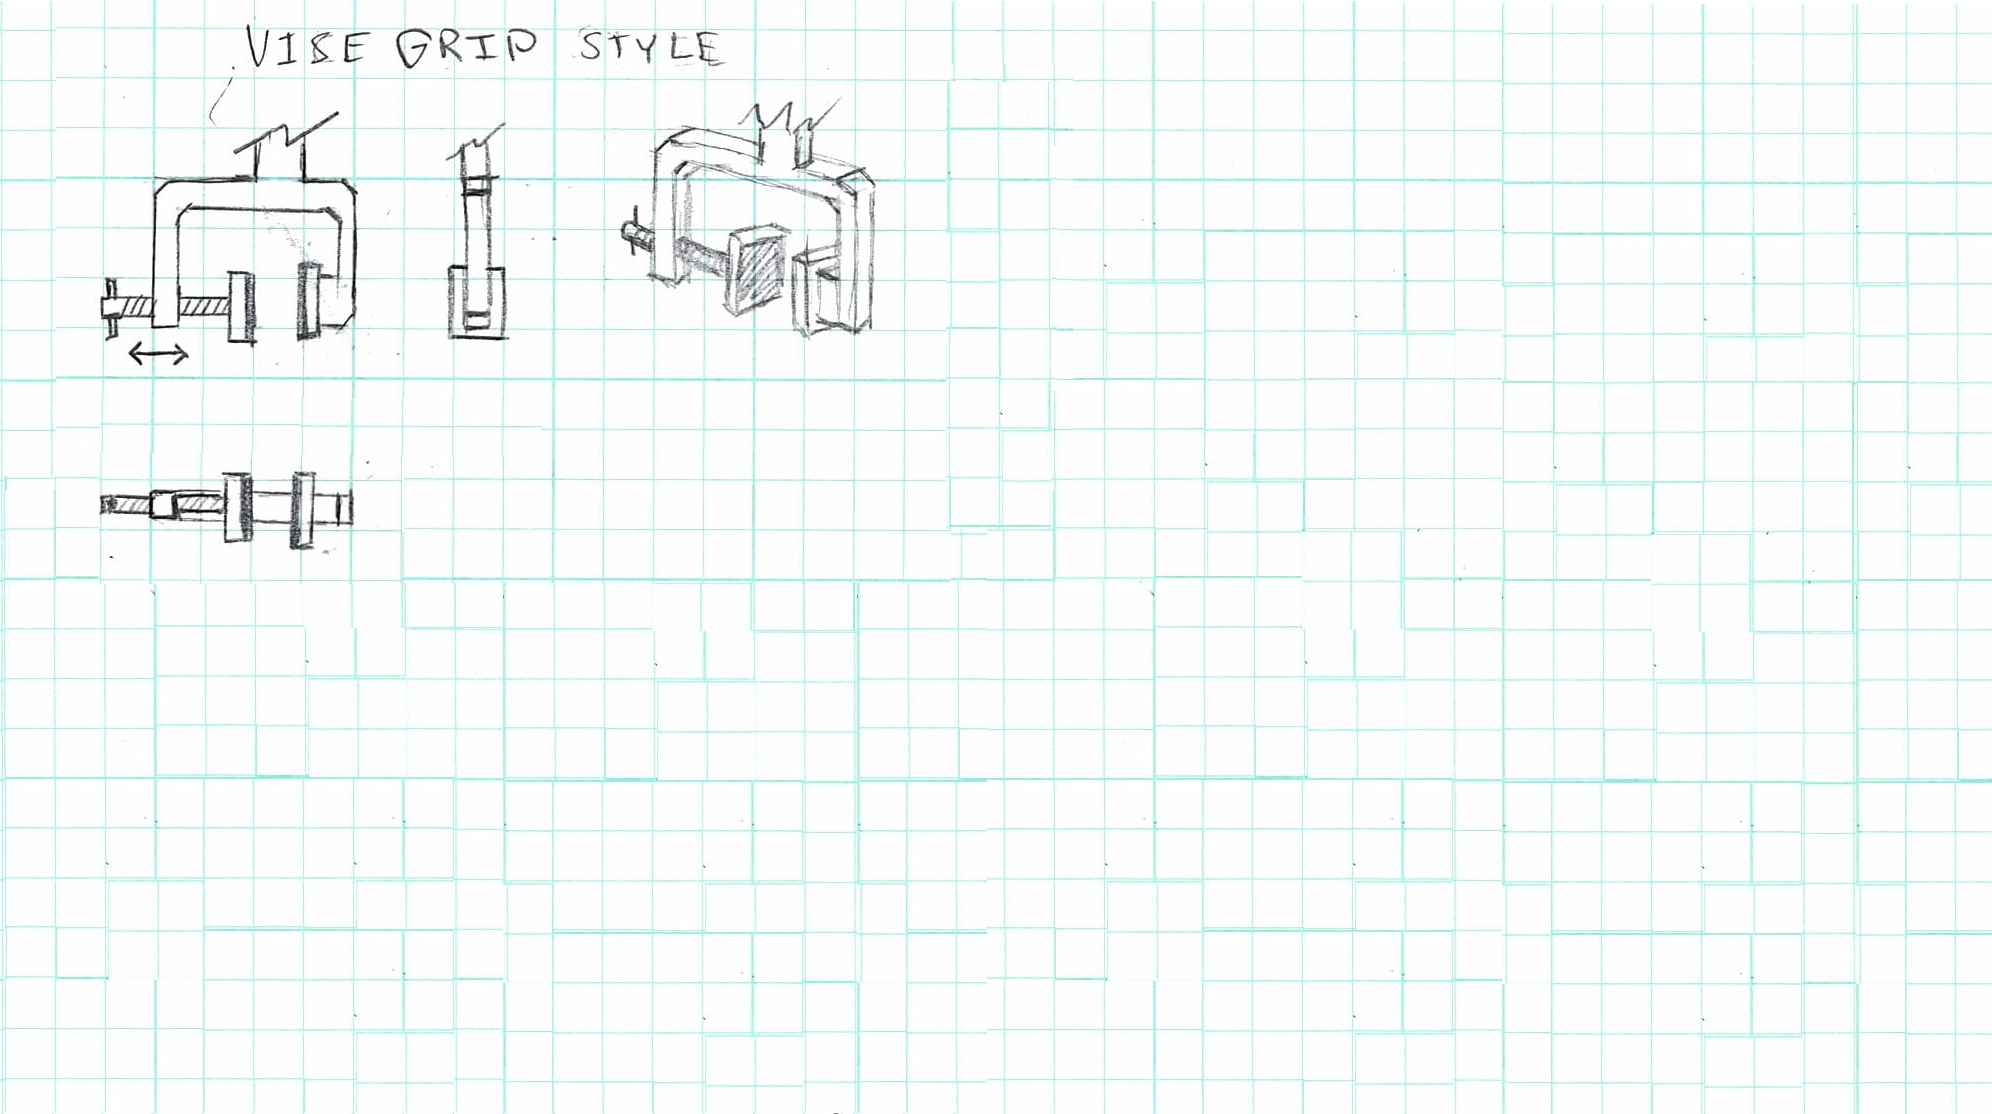 VISE GRIP STYLE